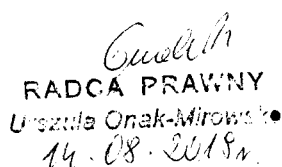 RADCA PRAWNY
Urszula Onak-Mirowska
14.08.2018r.